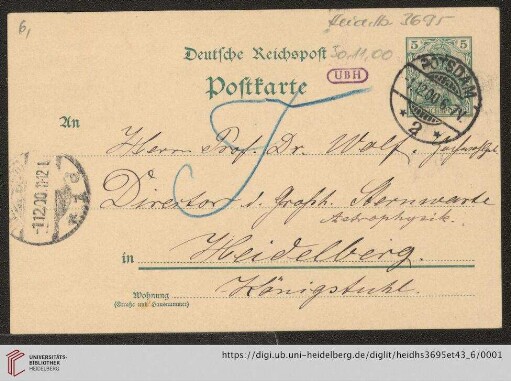 6,
Heid. Hs. 3695
30.11.00
Deutsche Reichspost
Postkarte
UBH
5 5
POTSDAM
12.00.6-7
* 2 *
An
Herrn Prof. Dr. Wolf.
Director d. Grosh. Sternwarte
Astrophysik.
in Heidelberg.
Königstuhl.
Wohnung
(Straße und Hausnummer)
1.12.00.11-12
UNIVERSITÄTS-
BIBLIOTHEK
HEIDELBERG
https://digi.ub.uni-heidelberg.de/diglit/heidhs3695et43_6/0001